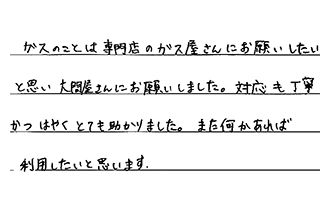 ガスのことは専門店のガス屋さんにお願いしたい
と思い大問屋さんにお願いしました。対応も丁寧
かつはやくとても助かりました。また何かあれば
利用したいと思います.